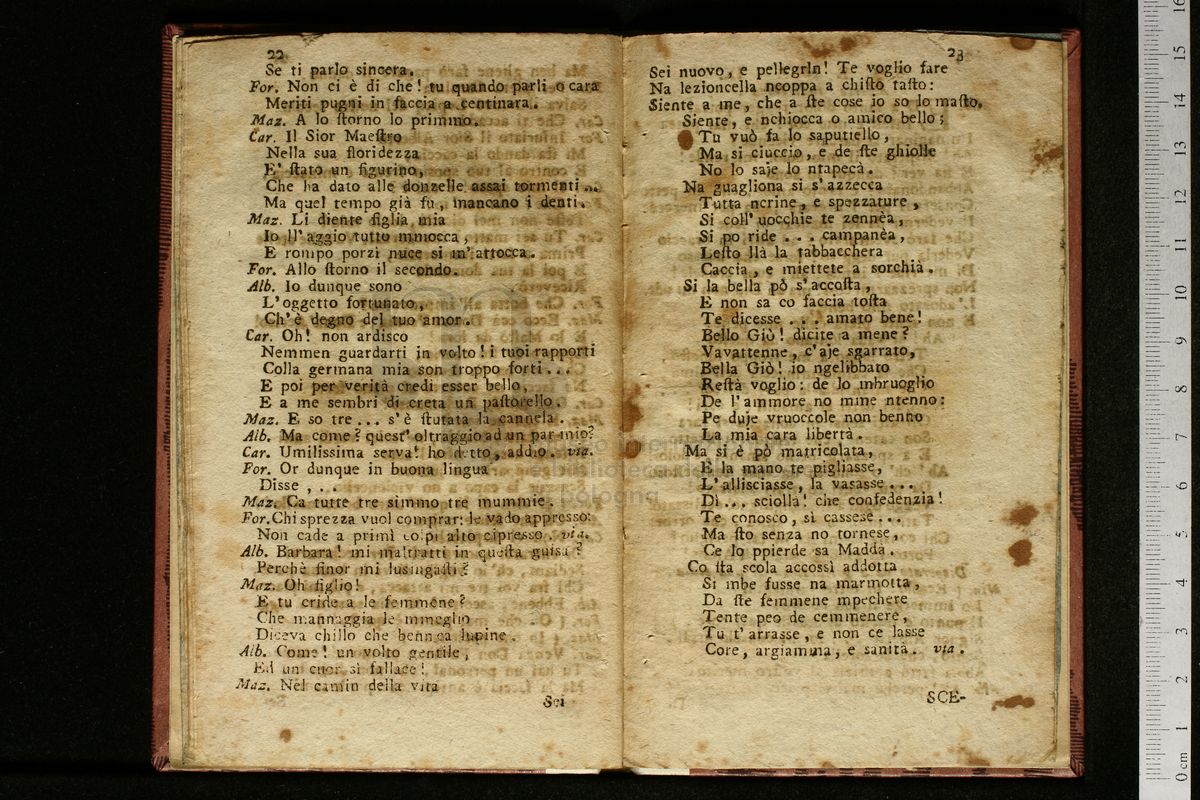 22
Se ti parlo sincera.
For. Non ci è di che! tu quando parli o cara
Meriti pugni in faccia a centinara.
Maz. A lo ſtorno lo primmo.
Car. Il Sior Maeſtro
Nella sua floridezza
E' ſtato un figurino,
Che ha dato alle donzelle assai tormenti...
Ma quel tempo già fu, mancano i denti.
Maz. Li diente figlia mia
Io ll' aggio tutto mmocca,
E rompo porzì nuce si m' attocca.
For. Allo ſtorno il secondo.
Alb. Io dunque sono
L' oggetto fortunato,
Ch' è degno del tuo amor.
Car. Oh! non ardisco
Nemmen guardarti in volto! i tuoi rapporti
Colla germana mia son troppo forti...
E poi per verità credi esser bello,
E a me sembri di creta un paſtorello.
Maz. E so tre... s' è ſtutata la cannela.
Alb. Ma come? queſt' oltraggio ad un par mio?
Car. Umilissima serva! ho detto, addio. via.
For. Or dunque in buona lingua
Disse ...
Maz. Ca tutte tre simmo tre mummie.
For. Chi sprezza vuol comprar: le vado appresso:
Non cade a primi colpi alto cipresso. via.
Alb. Barbara! mi maltratti in queſta guisa?
Perchè finor mi lusingaſti?
Maz. Oh figlio!
E tu cride a le femmene?
Che mannaggia le mmeglio
Diceva chillo che benneva lupine.
Alb. Come! un volto gentile,
Ed un cuor sì fallace!
Maz. Nel camin della vita
Sei
23
Sei nuovo, e pellegrin! Te voglio fare
Na lezioncella ncoppa a chiſto taſto:
Siente a me, che a ſte cose io so lo maſto.
Siente, e nchiocca o amico bello;
Tu vuò fa lo saputiello,
Ma si ciuccio, e de ſte ghiolle
No lo saje lo ntapecà.
Na guagliona si s' azzecca
Tutta ncrine, e spezzature,
Si coll' uocchie te zennèa,
Si po ride... campanèa,
Leſto llà la tabbacchera
Caccia, e miettete a sorchià.
Si la bella pò s' accoſta,
E non sa co faccia toſta
Te dicesse... amato bene!
Bello Giò! dicite a mene?
Vavattenne, c' aje sgarrato,
Bella Giò! io ngelibbato
Reſtà voglio: de lo mbruoglio
De l' ammore no mme ntenno:
Pe duje vruoccole non benno
La mia cara libertà.
Ma si è pò matricolata,
E la mano te pigliasse,
L' allisciasse, la vasasse...
Dì... sciolla! che confedenzia!
Te conosco, si cassese...
Ma ſto senza no tornese,
Ce lo ppierde sa Madda.
Co ſta scola accossì addotta
Si mbe fusse na marmotta,
Da ſte femmene mpechere
Tente peo de cemmenere,
Tu t' arrasse, e non ce lasse
Core, argiamma, e sanità. via.
SCE-